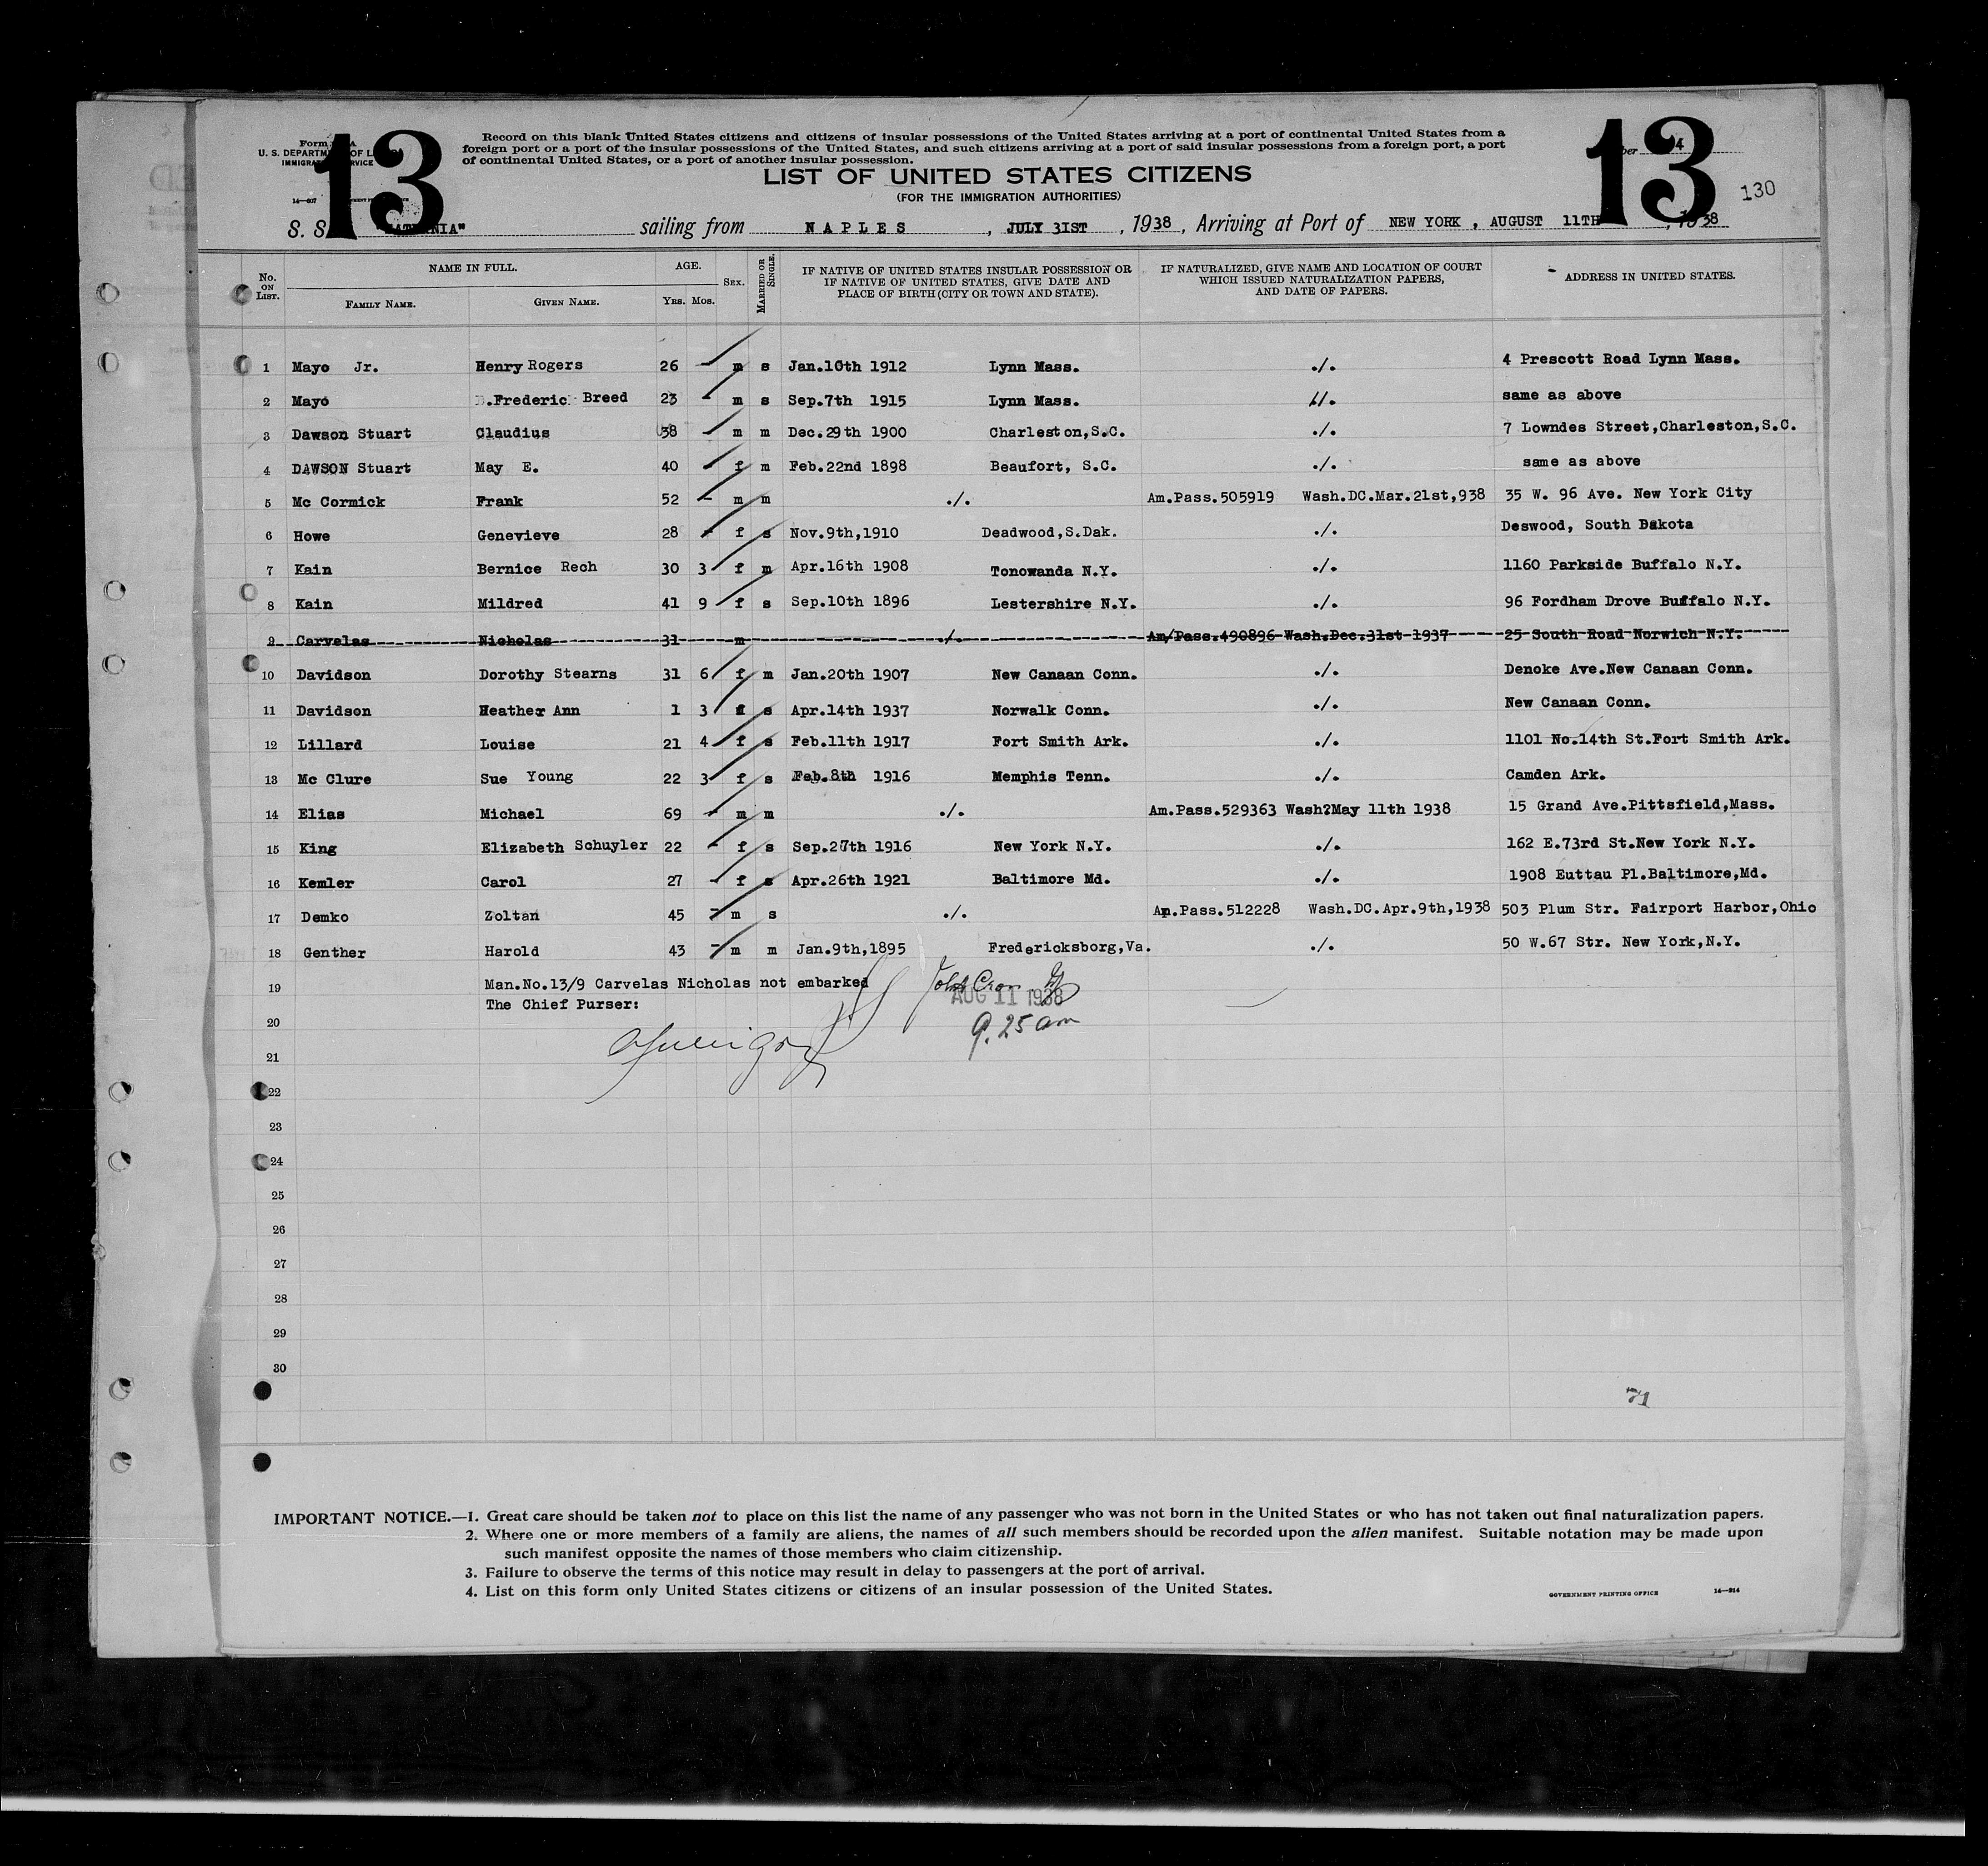 13
13
130
Record on this blank United States citizens and citizens of insular possessions of the United States arriving at a port of continental United States from a
foreign port or a port of the insular possessions of the United States, and such citizens arriving at a port of said insular possessions from a foreign port, a port
of continental United States, or a port of another insular possession.
Form
U. S. DEPARTM OF L
IMMIGRA RVICE
14—607
4
LIST OF UNITED STATES CITIZENS
(FOR THE IMMIGRATION AUTHORITIES)
S. S. sailing from NAPLES , JULY 31ST , 1938 , Arriving at Port of NEW YORK , AUGUST 11TH , 1938
No. ON LIST. NAME IN FULL. FAMILY NAME. GIVEN NAME. AGE. YRS. MOS. SEX. MARRIED OR SINGLE. IF NATIVE OF UNITED STATES INSULAR POSSESSION OR IF NATIVE OF UNITED STATES, GIVE DATE AND PLACE OF BIRTH (CITY OR TOWN AND STATE). IF NATURALIZED, GIVE NAME AND LOCATION OF COURT WHICH ISSUED NATURALIZATION PAPERS, AND DATE OF PAPERS. ADDRESS IN UNITED STATES.
1 Mayo Jr. Henry Rogers 26 - m s Jan.10th 1912 Lynn Mass. ./. 4 Prescott Road Lynn Mass.
2 Mayo .Frederic Breed 23 - m s Sep.7th 1915 Lynn Mass. ./. same as above
3 Dawson Stuart Claudius 38 - m m Dec.29th 1900 Charleston,S.C. ./. 7 Lowndes Street,Charleston,S.C.
4 DAWSON Stuart May E. 40 - f m Feb.22nd 1898 Beaufort, S.C. ./. same as above
5 Mc Cormick Frank 52 - m m ./. Am.Pass.505919 Wash.DC.Mar.21st,938 35 W. 96 Ave. New York City
6 Howe Genevieve 28 - f s Nov.9th,1910 Deadwood,S.Dak. ./. Deswood, South Dakota
7 Kain Bernice Rech 30 3 f m Apr.16th 1908 Tonowanda N.Y. ./. 1160 Parkside Buffalo N.Y.
8 Kain Mildred 41 9 f s Sep.10th 1896 Lestershire N.Y. ./. 96 Fordham Drove Buffalo N.Y.
9 Carvelas Nicholas 31 m ./. Am/Pass.490896 Wash.Dec.31st 1937 25 South Road Norwich N.Y.
10 Davidson Dorothy Stearns 31 6 f m Jan.20th 1907 New Canaan Conn. ./. Denoke Ave.New Canaan Conn.
11 Davidson Heather Ann 1 3 f s Apr.14th 1937 Norwalk Conn. ./. New Canaan Conn.
12 Lillard Louise 21 4 f s Feb.11th 1917 Fort Smith Ark. ./. 1101 No.14th St.Fort Smith Ark.
13 Mc Clure Sue Young 22 3 f s Feb.8th 1916 Memphis Tenn. ./. Camden Ark.
14 Elias Michael 69 - m m ./. Am.Pass.529363 Wash?May 11th 1938 15 Grand Ave.Pittsfield,Mass.
15 King Elizabeth Schuyler 22 - f s Sep.27th 1916 New York N.Y. ./. 162 E.73rd St.New York N.Y.
16 Kemler Carol 27 - f s Apr.26th 1921 Baltimore Md. ./. 1908 Euttau Pl.Baltimore,Md.
17 Demko Zoltan 45 - m s ./. Am.Pass.512228 Wash.DC.Apr.9th,1938 503 Plum Str. Fairport Harbor,Ohio
18 Genther Harold 43 - m m Jan.9th,1895 Fredericksborg,Va. ./. 50 W.67 Str. New York,N.Y.
19 Man.No.13/9 Carvelas Nicholas not embarked
The Chief Purser:
AUG 11 1938
20
9.25 am
21
22
23
24
25
26
27
28
29
30
71
IMPORTANT NOTICE.—1. Great care should be taken not to place on this list the name of any passenger who was not born in the United States or who has not taken out final naturalization papers.
2. Where one or more members of a family are aliens, the names of all such members should be recorded upon the alien manifest. Suitable notation may be made upon
such manifest opposite the names of those members who claim citizenship.
3. Failure to observe the terms of this notice may result in delay to passengers at the port of arrival.
4. List on this form only United States citizens or citizens of an insular possession of the United States.
GOVERNMENT PRINTING OFFICE 14—914